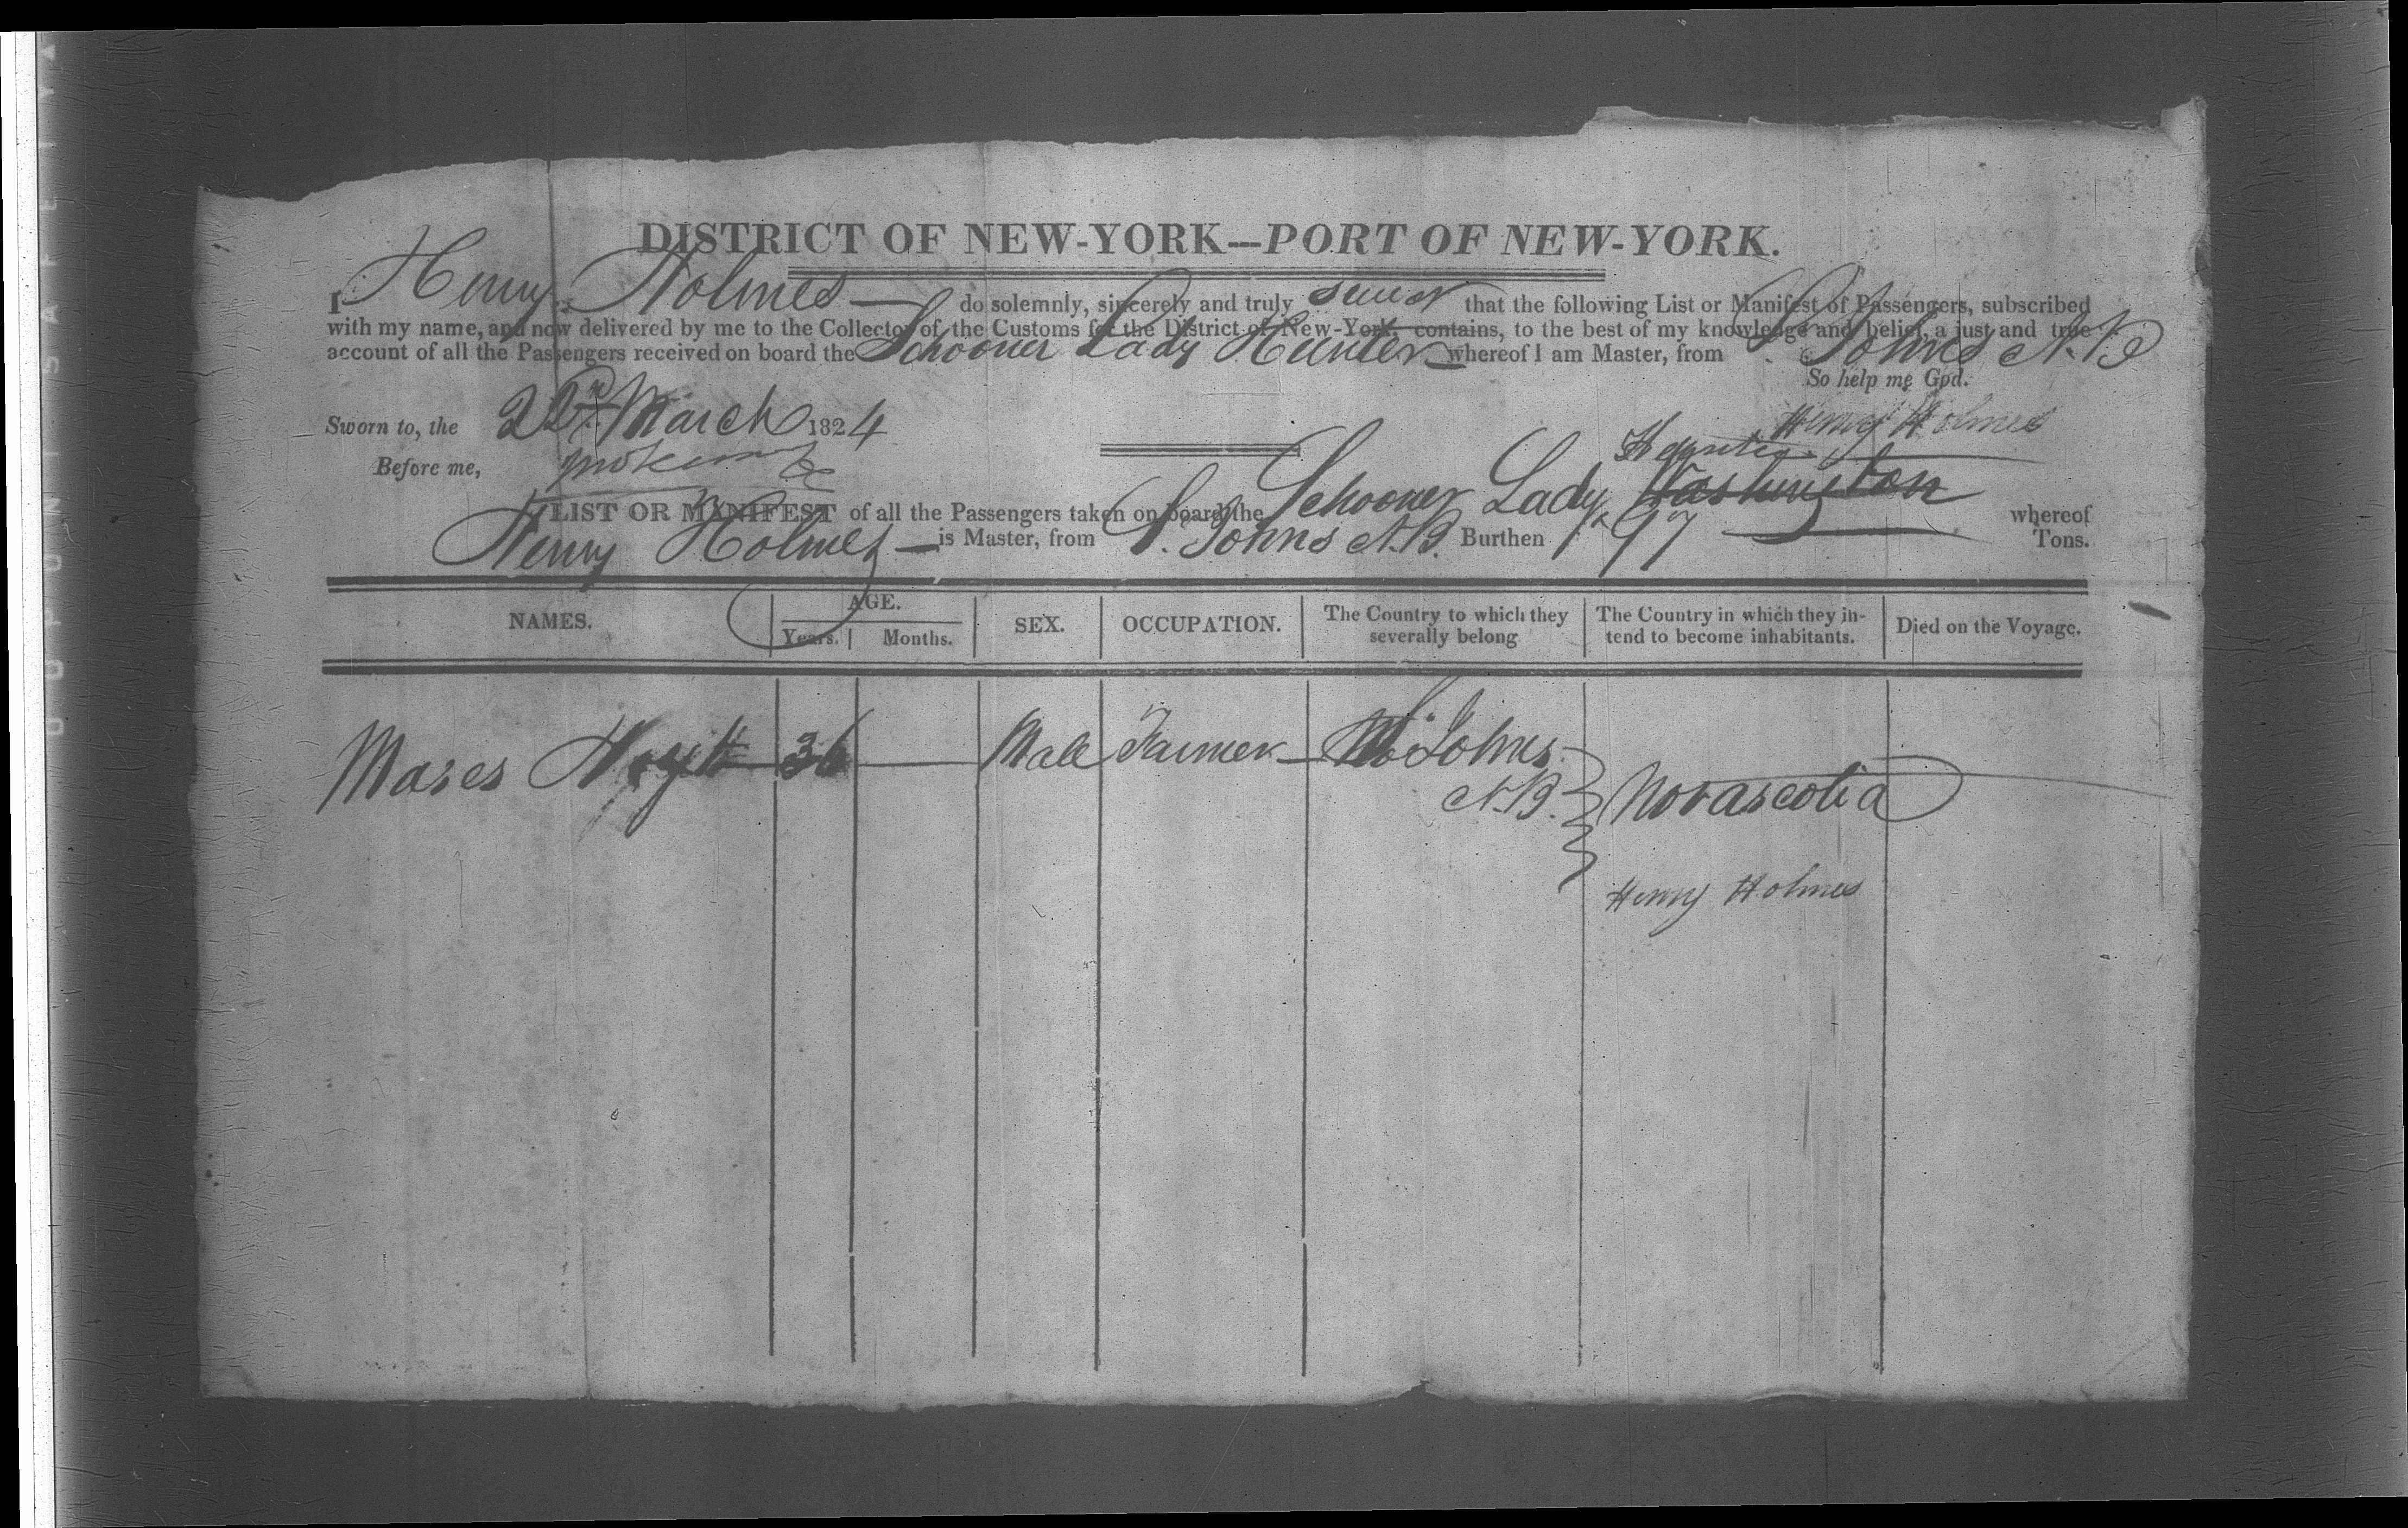 DISTRICT OF NEW-YORK—PORT OF NEW-YORK.
I Henry Holmes — do solemnly, sincerely and truly swear that the following List or Manifest of Passengers, subscribed
with my name, and now delivered by me to the Collector of the Customs for the District of New-York, contains, to the best of my knowledge and belief, a just and true
account of all the Passengers received on board the Schooner Lady Hunter whereof I am Master, from St. Johns N.B
So help me God.
Sworn to, the 22n March 1824 Henry Holmes
Before me,
Hunter
LIST OR MANIFEST of all the Passengers taken on board the Schooner Lady Washington whereof
Henry Holmes — is Master, from St. Johns N.B. Burthen 97 Tons.
NAMES. AGE. Years. Months. SEX. OCCUPATION. The Country to which they severally belong The Country in which they intend to become inhabitants. Died on the Voyage.
Moses Hoyt 36 — Male Farmer — St Johns
N.B. Novascotia
Henry Holmes